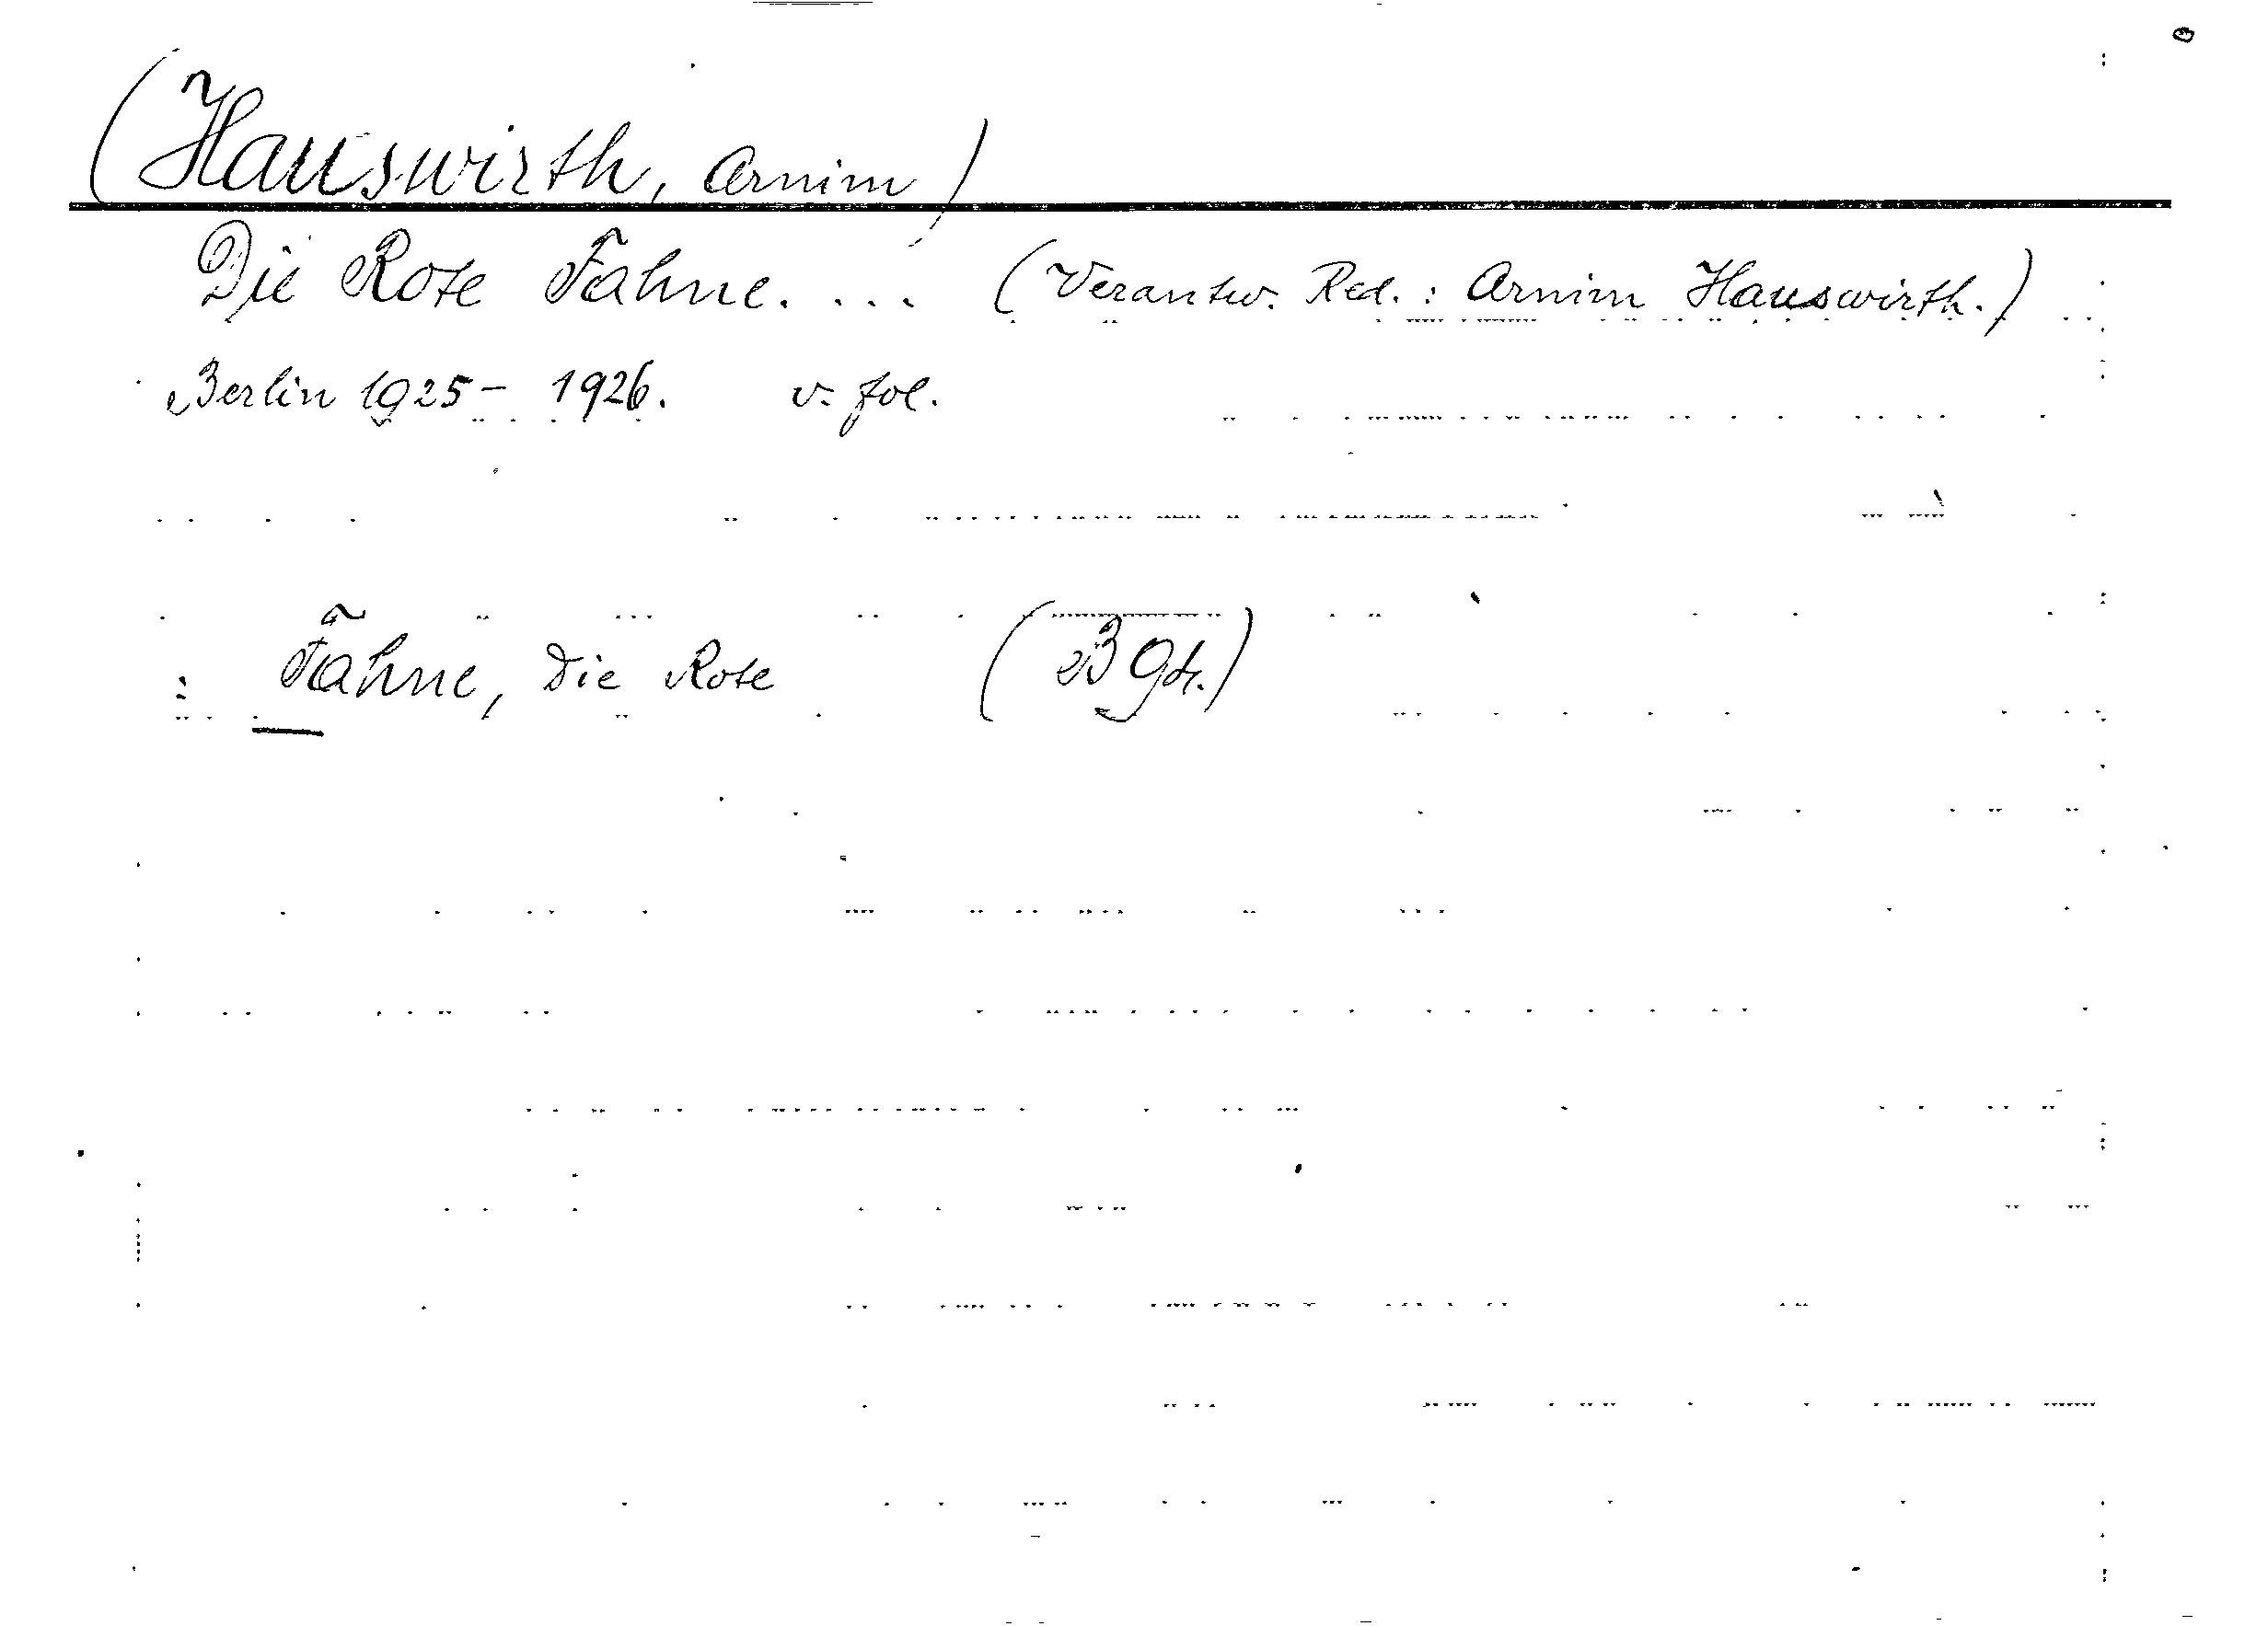 (Hauswirth, Arnim)
Die Rote Fahne. ... (Verantw. Red.: Arnim Hauswirth.)
Berlin 1925- 1926. v. fol.
: Fahne, Die Rote (B